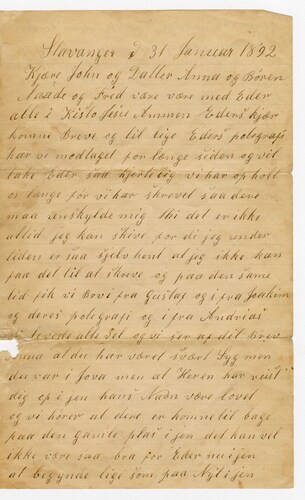 Stavanger d 31 Januar 1892
Kjære John og Datter Anna og Børen
Naade og Fred være være med Eder
alle i Kristo Jesu Ammen Eders kjær
komne Breve og til lige Eders potografi
har vi modtaget for længe siden og vil
take Eder saa hjertelig vi har opholt
os længe for vi har skrevet saa dere
maa undskylde mig thi det er ikke
altid jeg kan skive for di jeg under
tiden er saa sjelvhent at jeg ikke kan
faa det til at skreve og paa den same
tid fik vi Brve fra Gustaf og i fra Joakim
og deres potografi og i fra Andrias
Levede alle Set og vi ser af dit Brev
Anna at du har været svært Syg men
der var i Jova men at Heren har reist
dig op i jen hans Navn være lovet
og vi hører at dere er komne til bage
paa den gamle plas i jen det kan vel
ikke være saa bra for Eder nu i jen
at begynde lige som paa Nyt i jen